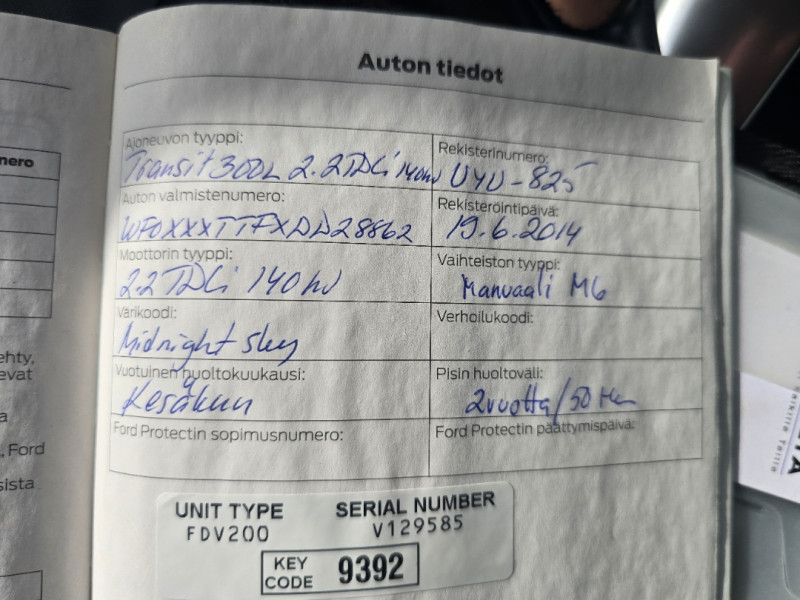 Auton tiedot
Ajoneuvon tyyppi:
Rekisterinumero:
Transit 300L 2.2TDCi 140hv
UYU-825
Auton valmistenumero:
Rekisteröintipäivä:
WF0XXXTTFXDD28862
19.6.2014
Moottorin tyyppi:
Vaihteiston tyyppi:
2.2TDCi 140hv
Manuaali M6
Värikoodi:
Verhoilukoodi:
Midnight sky
Vuotuinen huoltokuukausi:
Pisin huoltoväli:
Kesäkuu
2vuotta/50tkm
Ford Protectin sopimusnumero:
Ford Protectin päättymispäivä:
UNIT TYPE
SERIAL NUMBER
FDV200
V129585
KEY CODE 9392
nero
ehty,
evat
a
, Ford
sista